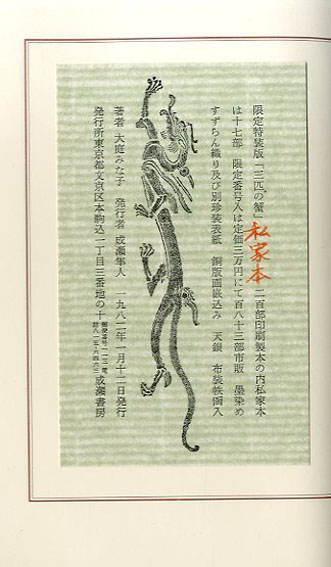 限定特装版「三匹の蟹」私家本 二百部印刷製本の内私家本
は十七部 限定番号入は定価三万円にて百八十三部市販 墨染め
すずらん織り及び別珍装表紙 銅版画嵌込み 天銀 布装帙函入
著者 大庭みな子 発行者 成瀬隼人 一九八二年一月十二日発行
発行所東京都文京区本駒込一丁目三番地の十 成瀬書房